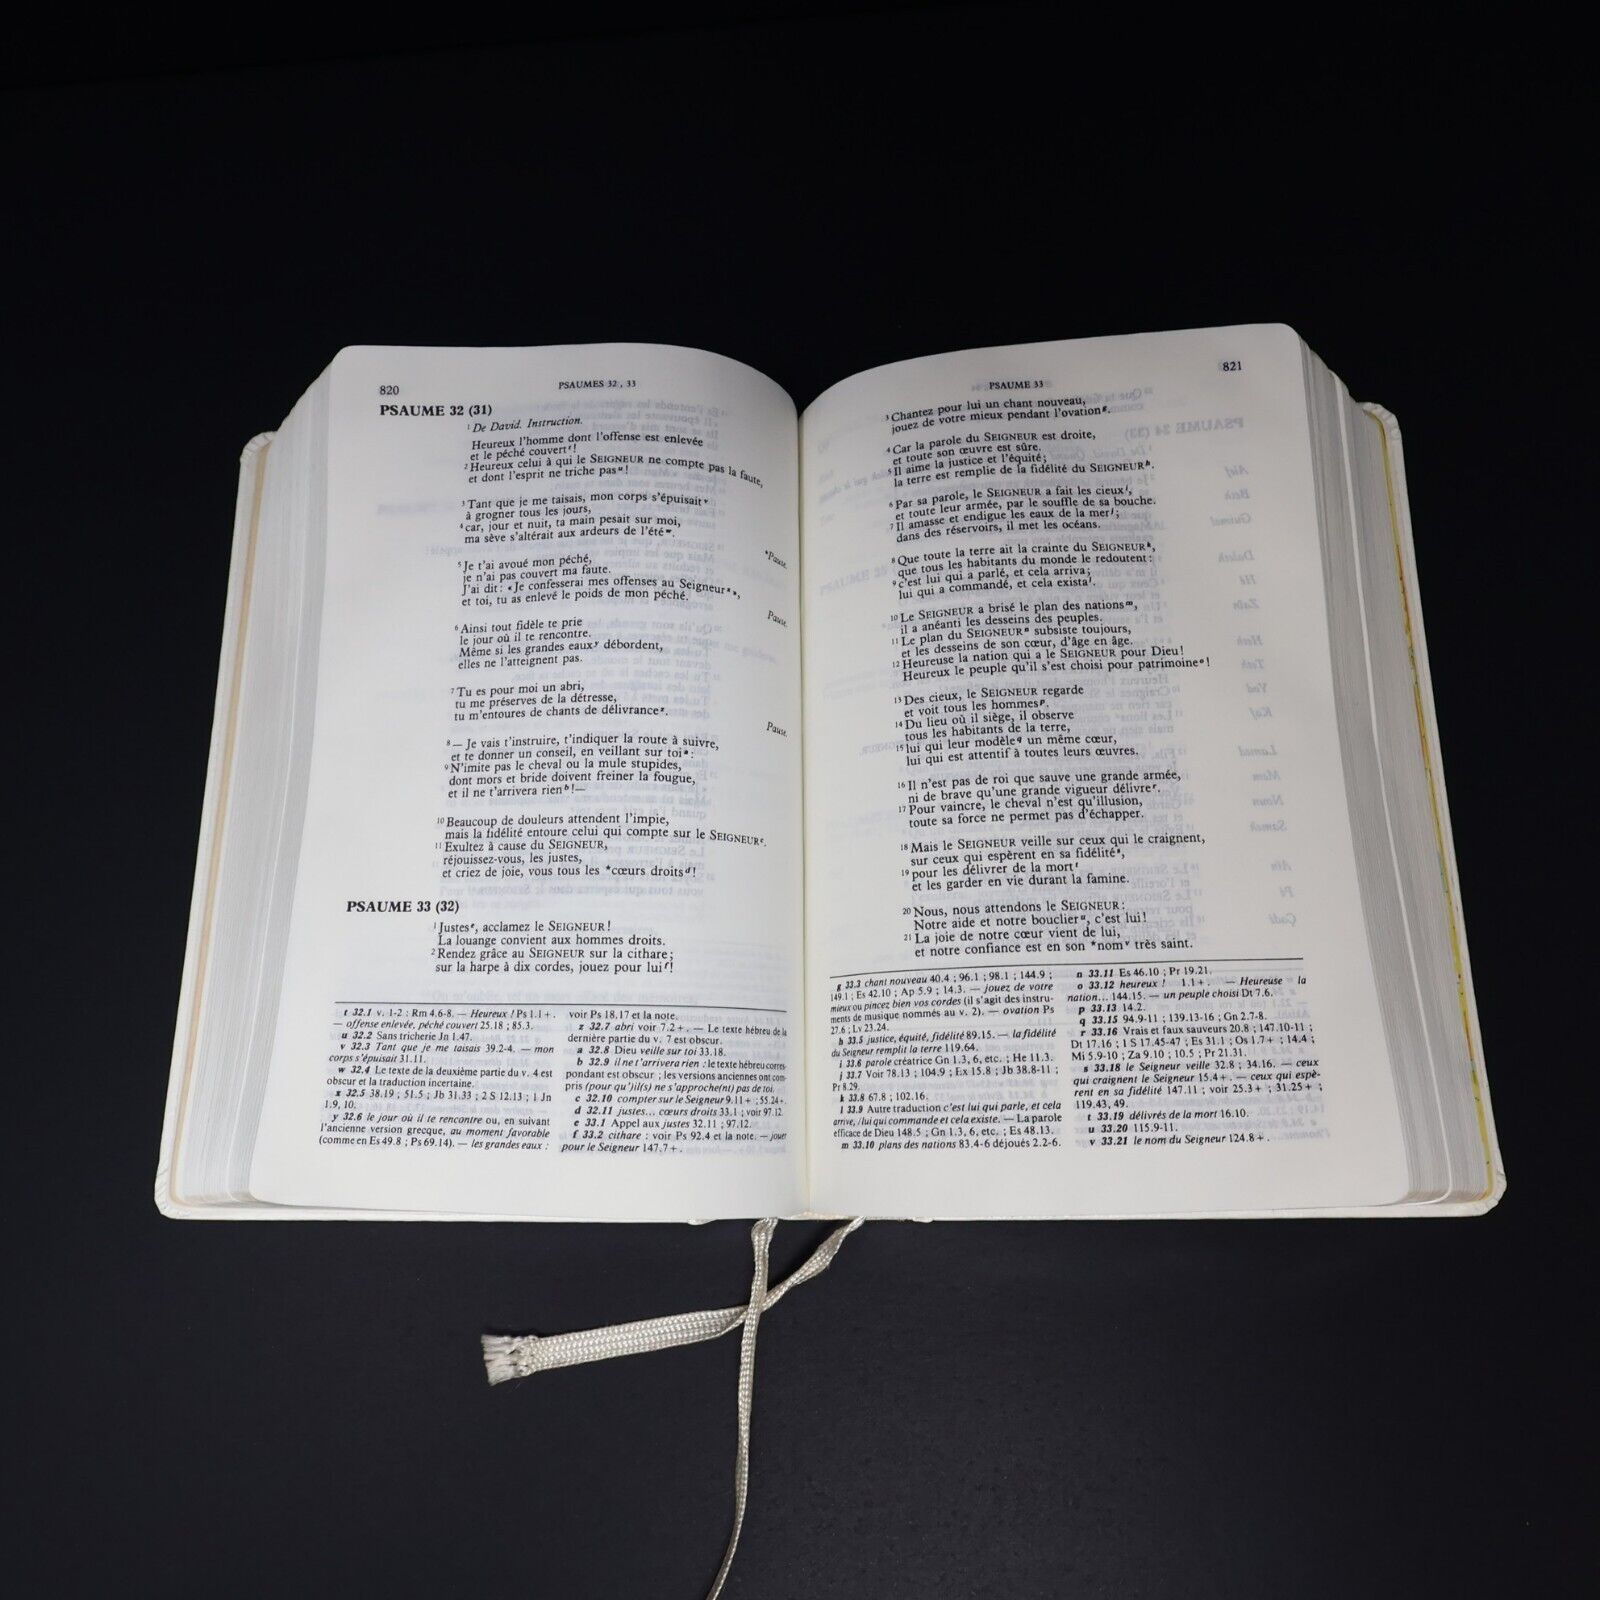 820
PSAUMES 32 , 33
PSAUME 32 (31)
1 De David. Instruction.
Heureux l'homme dont l'offense est enlevée
et le péché couvert t !
2 Heureux celui à qui le SEIGNEUR ne compte pas la faute,
et dont l'esprit ne triche pas u !
3 Tant que je me taisais, mon corps s'épuisait v
à grogner tous les jours,
4 car, jour et nuit, ta main pesait sur moi,
ma sève s'altérait aux ardeurs de l'été w.
*Pause.
5 Je t'ai avoué mon péché,
je n'ai pas couvert ma faute.
J'ai dit : «Je confesserai mes offenses au Seigneur x»,
et toi, tu as enlevé le poids de mon péché.
Pause.
6 Ainsi tout fidèle te prie
le jour où il te rencontre.
Même si les grandes eaux y débordent,
elles ne l'atteignent pas.
7 Tu es pour moi un abri,
tu me préserves de la détresse,
tu m'entoures de chants de délivrance z.
Pause.
8 — Je vais t'instruire, t'indiquer la route à suivre,
et te donner un conseil, en veillant sur toi a :
9 N'imite pas le cheval ou la mule stupides,
dont mors et bride doivent freiner la fougue,
et il ne t'arrivera rien b !—
10 Beaucoup de douleurs attendent l'impie,
mais la fidélité entoure celui qui compte sur le SEIGNEUR c.
11 Exultez à cause du SEIGNEUR,
réjouissez-vous, les justes,
et criez de joie, vous tous les *cœurs droits d !
PSAUME 33 (32)
1 Justes e, acclamez le SEIGNEUR !
La louange convient aux hommes droits.
2 Rendez grâce au SEIGNEUR sur la cithare ;
sur la harpe à dix cordes, jouez pour lui f !
t 32.1 v. 1-2 : Rm 4.6-8. — Heureux ! Ps 1.1+.
— offense enlevée, péché couvert 25.18 ; 85.3.
u 32.2 Sans tricherie Jn 1.47.
v 32.3 Tant que je me taisais 39.2-4. — mon
corps s'épuisait 31.11.
w 32.4 Le texte de la deuxième partie du v. 4 est
obscur et la traduction incertaine.
x 32.5 38.19 ; 51.5 ; Jb 31.33 ; 2 S 12.13 ; 1 Jn
1.9, 10.
y 32.6 le jour où il te rencontre ou, en suivant
l'ancienne version grecque, au moment favorable
(comme en Es 49.8 ; Ps 69.14). — les grandes eaux :
voir Ps 18.17 et la note.
z 32.7 abri voir 7.2+. — Le texte hébreu de la
dernière partie du v. 7 est obscur.
a 32.8 Dieu veille sur toi 33.18.
b 32.9 il ne t'arrivera rien : le texte hébreu corres-
pondant est obscur ; les versions anciennes ont com-
pris (pour qu')il(s) ne s'approche(nt) pas de toi.
c 32.10 compter sur le Seigneur 9.11+ ; 55.24+.
d 32.11 justes... cœurs droits 33.1 ; voir 97.12.
e 33.1 Appel aux justes 32.11 ; 97.12.
f 33.2 cithare : voir Ps 92.4 et la note. — jouer
pour le Seigneur 147.7+.
PSAUME 33
821
3 Chantez pour lui un chant nouveau,
jouez de votre mieux pendant l'ovation g.
4 Car la parole du SEIGNEUR est droite,
et toute son œuvre est sûre.
5 Il aime la justice et l'équité ;
la terre est remplie de la fidélité du SEIGNEUR h.
6 Par sa parole, le SEIGNEUR a fait les cieux i,
et toute leur armée, par le souffle de sa bouche.
7 Il amasse et endigue les eaux de la mer j ;
dans des réservoirs, il met les océans.
8 Que toute la terre ait la crainte du SEIGNEUR k,
que tous les habitants du monde le redoutent :
9 c'est lui qui a parlé, et cela arriva ;
lui qui a commandé, et cela exista l.
10 Le SEIGNEUR a brisé le plan des nations m,
il a anéanti les desseins des peuples.
11 Le plan du SEIGNEUR n subsiste toujours,
et les desseins de son cœur, d'âge en âge.
12 Heureuse la nation qui a le SEIGNEUR pour Dieu !
Heureux le peuple qu'il s'est choisi pour patrimoine o !
13 Des cieux, le SEIGNEUR regarde
et voit tous les hommes p.
14 Du lieu où il siège, il observe
tous les habitants de la terre,
15 lui qui leur modèle q un même cœur,
lui qui est attentif à toutes leurs œuvres.
16 Il n'est pas de roi que sauve une grande armée,
ni de brave qu'une grande vigueur délivre r.
17 Pour vaincre, le cheval n'est qu'illusion,
toute sa force ne permet pas d'échapper.
18 Mais le SEIGNEUR veille sur ceux qui le craignent,
sur ceux qui espèrent en sa fidélité s,
19 pour les délivrer de la mort t
et les garder en vie durant la famine.
20 Nous, nous attendons le SEIGNEUR :
Notre aide et notre bouclier u, c'est lui !
21 La joie de notre cœur vient de lui,
et notre confiance est en son *nom v très saint.
g 33.3 chant nouveau 40.4 ; 96.1 ; 98.1 ; 144.9 ;
149.1 ; Es 42.10 ; Ap 5.9 ; 14.3. — jouez de votre
mieux ou pincez bien vos cordes (il s'agit des instru-
ments de musique nommés au v. 2). — ovation Ps
27.6 ; Lv 23.24.
h 33.5 justice, équité, fidélité 89.15. — la fidélité
du Seigneur remplit la terre 119.64.
i 33.6 parole créatrice Gn 1.3, 6, etc. ; He 11.3.
j 33.7 Voir 78.13 ; 104.9 ; Ex 15.8 ; Jb 38.8-11 ;
Pr 8.29.
k 33.8 67.8 ; 102.16.
l 33.9 Autre traduction c'est lui qui parle, et cela
arrive, /lui qui commande et cela existe. — La parole
efficace de Dieu 148.5 ; Gn 1.3, 6, etc. ; Es 48.13.
m 33.10 plans des nations 83.4-6 déjoués 2.2-6.
n 33.11 Es 46.10 ; Pr 19.21.
o 33.12 heureux ! 1.1+. — Heureuse la
nation... 144.15. — un peuple choisi Dt 7.6.
p 33.13 14.2.
q 33.15 94.9-11 ; 139.13-16 ; Gn 2.7-8.
r 33.16 Vrais et faux sauveurs 20.8 ; 147.10-11 ;
Dt 17.16 ; 1 S 17.45-47 ; Es 31.1 ; Os 1.7+ ; 14.4 ;
Mi 5.9-10 ; Za 9.10 ; 10.5 ; Pr 21.31.
s 33.18 le Seigneur veille 32.8 ; 34.16. — ceux
qui craignent le Seigneur 15.4+. — ceux qui espè-
rent en sa fidélité 147.11 ; voir 25.3+ ; 31.25+ ;
119.43, 49.
t 33.19 délivrés de la mort 16.10.
u 33.20 115.9-11.
v 33.21 le nom du Seigneur 124.8+.